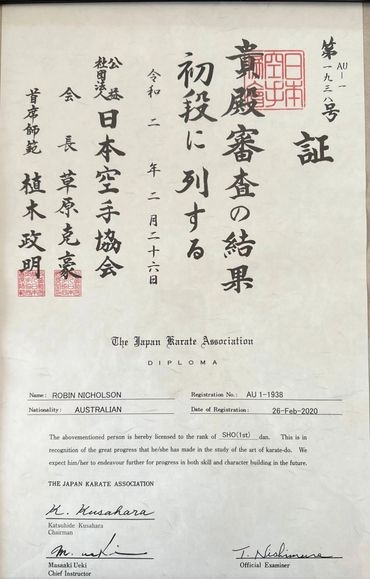 第 AU-一 一九三八号
証
貴殿審査の結果
初段に列する
令和二年二月二十六日
公益社団法人 日本空手協会
会長 草原克豪
首席師範 植木政明
The Japan Karate Association
DIPLOMA
Name: ROBIN NICHOLSON
Registration No.: AU 1-1938
Nationality: AUSTRALIAN
Date of Registration: 26-Feb-2020
The abovementioned person is hereby licensed to the rank of SHO(1st) dan. This is in
recognition of the great progress that he/she has made in the study of the art of karate-do. We
expect him/her to endeavour further for progress in both skill and character building in the future.
THE JAPAN KARATE ASSOCIATION
K. Kusahara
Katsuhide Kusahara
Chairman
M. Ueki
T. Nishimura
Masaaki Ueki
Official Examiner
Chief Instructor